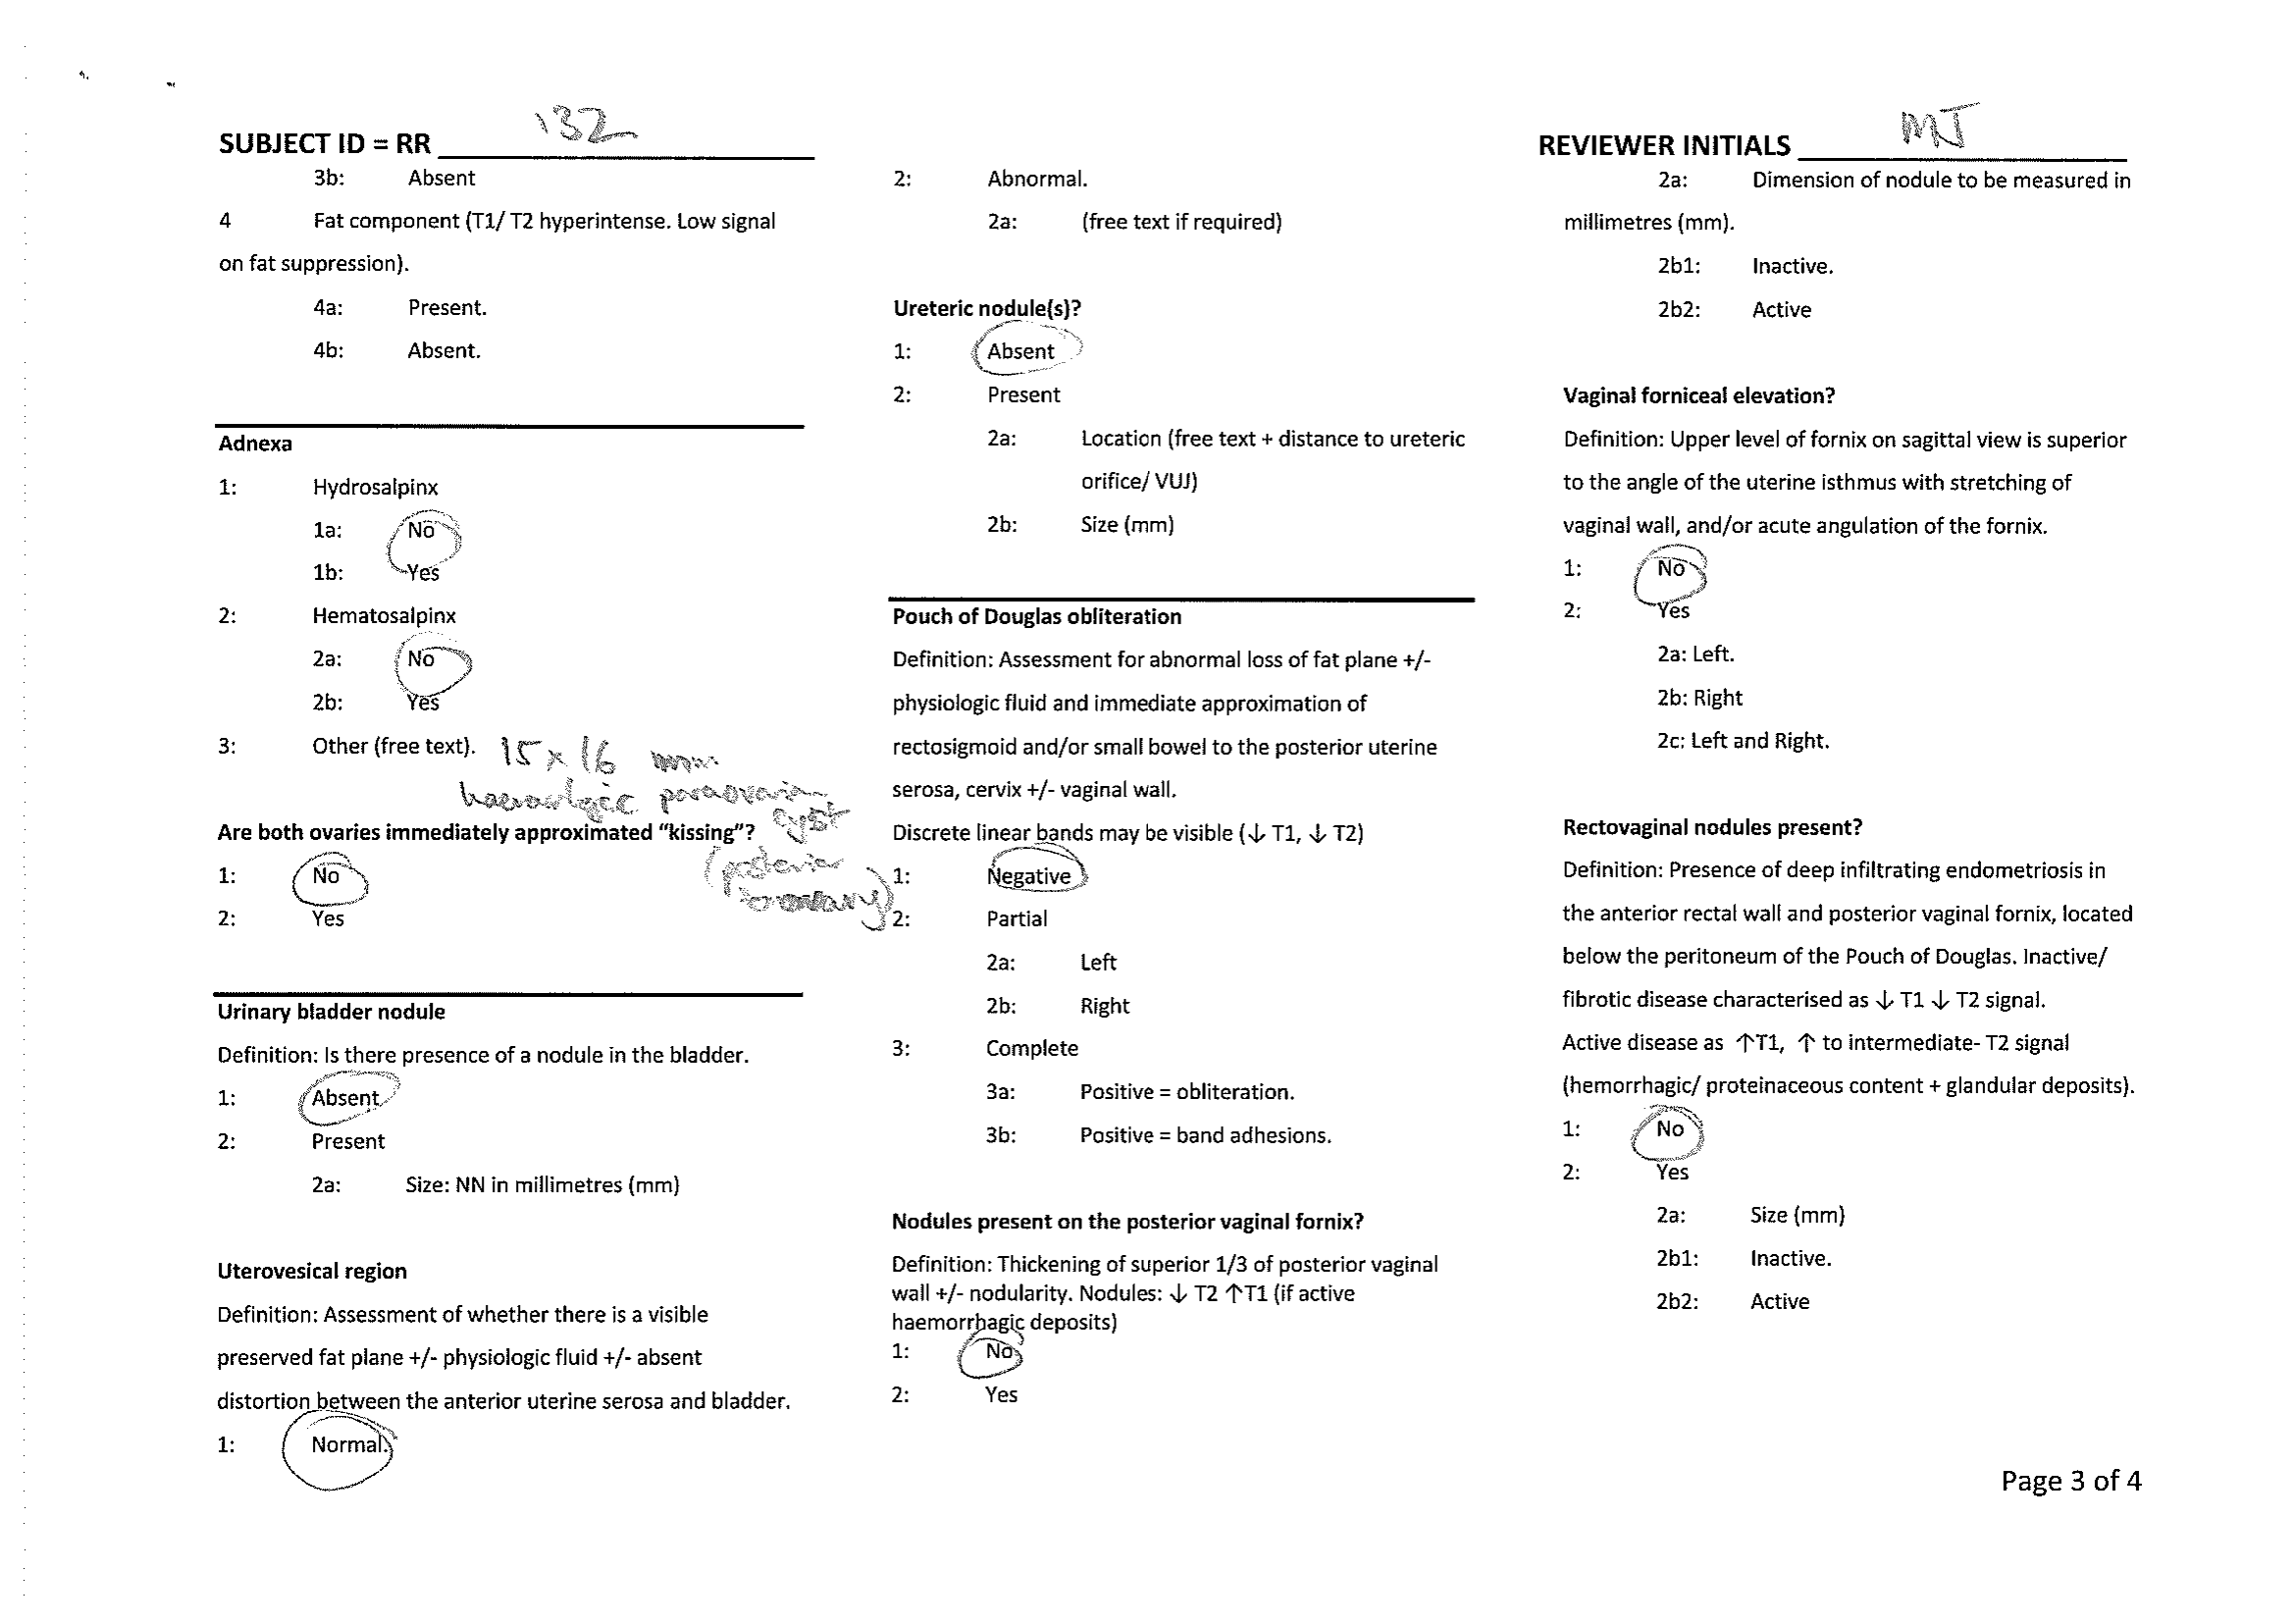 SUBJECT ID = RR 132
3b: Absent
4 Fat component (T1/ T2 hyperintense. Low signal
on fat suppression).
4a: Present.
4b: Absent.
Adnexa
1: Hydrosalpinx
1a: No
1b: Yes
2: Hematosalpinx
2a: No
2b: Yes
3: Other (free text). 15 x 16 mm
paraovarian
cyst
Are both ovaries immediately approximated “kissing”?
(posterior
1: No
2: Yes
Urinary bladder nodule
Definition: Is there presence of a nodule in the bladder.
1: Absent
2: Present
2a: Size: NN in millimetres (mm)
Uterovesical region
Definition: Assessment of whether there is a visible
preserved fat plane +/- physiologic fluid +/- absent
distortion between the anterior uterine serosa and bladder.
1: Normal.
2: Abnormal.
2a: (free text if required)
Ureteric nodule(s)?
1: Absent
2: Present
2a: Location (free text + distance to ureteric
orifice/ VUJ)
2b: Size (mm)
Pouch of Douglas obliteration
Definition: Assessment for abnormal loss of fat plane +/-
physiologic fluid and immediate approximation of
rectosigmoid and/or small bowel to the posterior uterine
serosa, cervix +/- vaginal wall.
Discrete linear bands may be visible (↓ T1, ↓ T2)
1: Negative
2: Partial
2a: Left
2b: Right
3: Complete
3a: Positive = obliteration.
3b: Positive = band adhesions.
Nodules present on the posterior vaginal fornix?
Definition: Thickening of superior 1/3 of posterior vaginal
wall +/- nodularity. Nodules: ↓ T2 ↑T1 (if active
haemorrhagic deposits)
1: No
2: Yes
REVIEWER INITIALS MJ
2a: Dimension of nodule to be measured in
millimetres (mm).
2b1: Inactive.
2b2: Active
Vaginal forniceal elevation?
Definition: Upper level of fornix on sagittal view is superior
to the angle of the uterine isthmus with stretching of
vaginal wall, and/or acute angulation of the fornix.
1: No
2: Yes
2a: Left.
2b: Right
2c: Left and Right.
Rectovaginal nodules present?
Definition: Presence of deep infiltrating endometriosis in
the anterior rectal wall and posterior vaginal fornix, located
below the peritoneum of the Pouch of Douglas. Inactive/
fibrotic disease characterised as ↓ T1 ↓ T2 signal.
Active disease as ↑T1, ↑ to intermediate- T2 signal
(hemorrhagic/ proteinaceous content + glandular deposits).
1: No
2: Yes
2a: Size (mm)
2b1: Inactive.
2b2: Active
Page 3 of 4